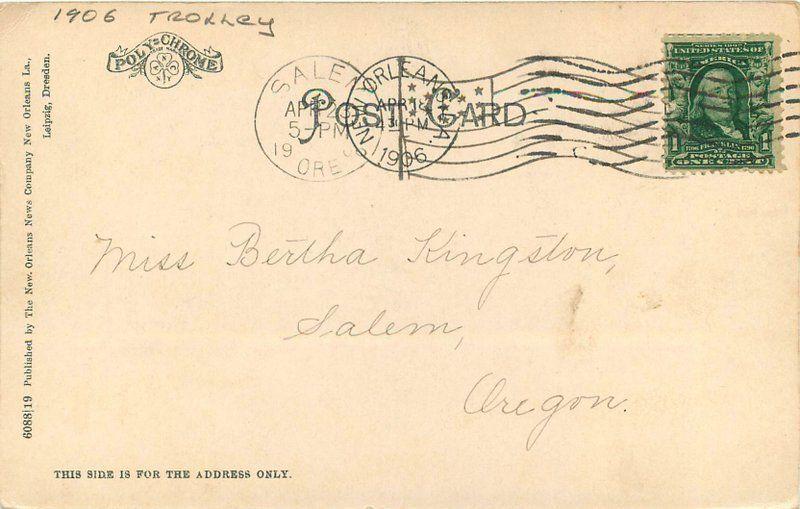 1906 TROLLEY
POLY-CHROME
POST CARD
SALEM
APR 2
5-PM
19
ORE
NEW ORLEANS, LA.
APR 1
4-PM
1906
SERIES 1902
UNITED STATES OF
AMERICA
1706 FRANKLIN 1790
1 POSTAGE 1
ONE CENT
Miss Bertha Kingston,
Salem,
Oregon.
6088/19 Published by The New Orleans News Company New Orleans La.,
Leipzig, Dresden.
THIS SIDE IS FOR THE ADDRESS ONLY.